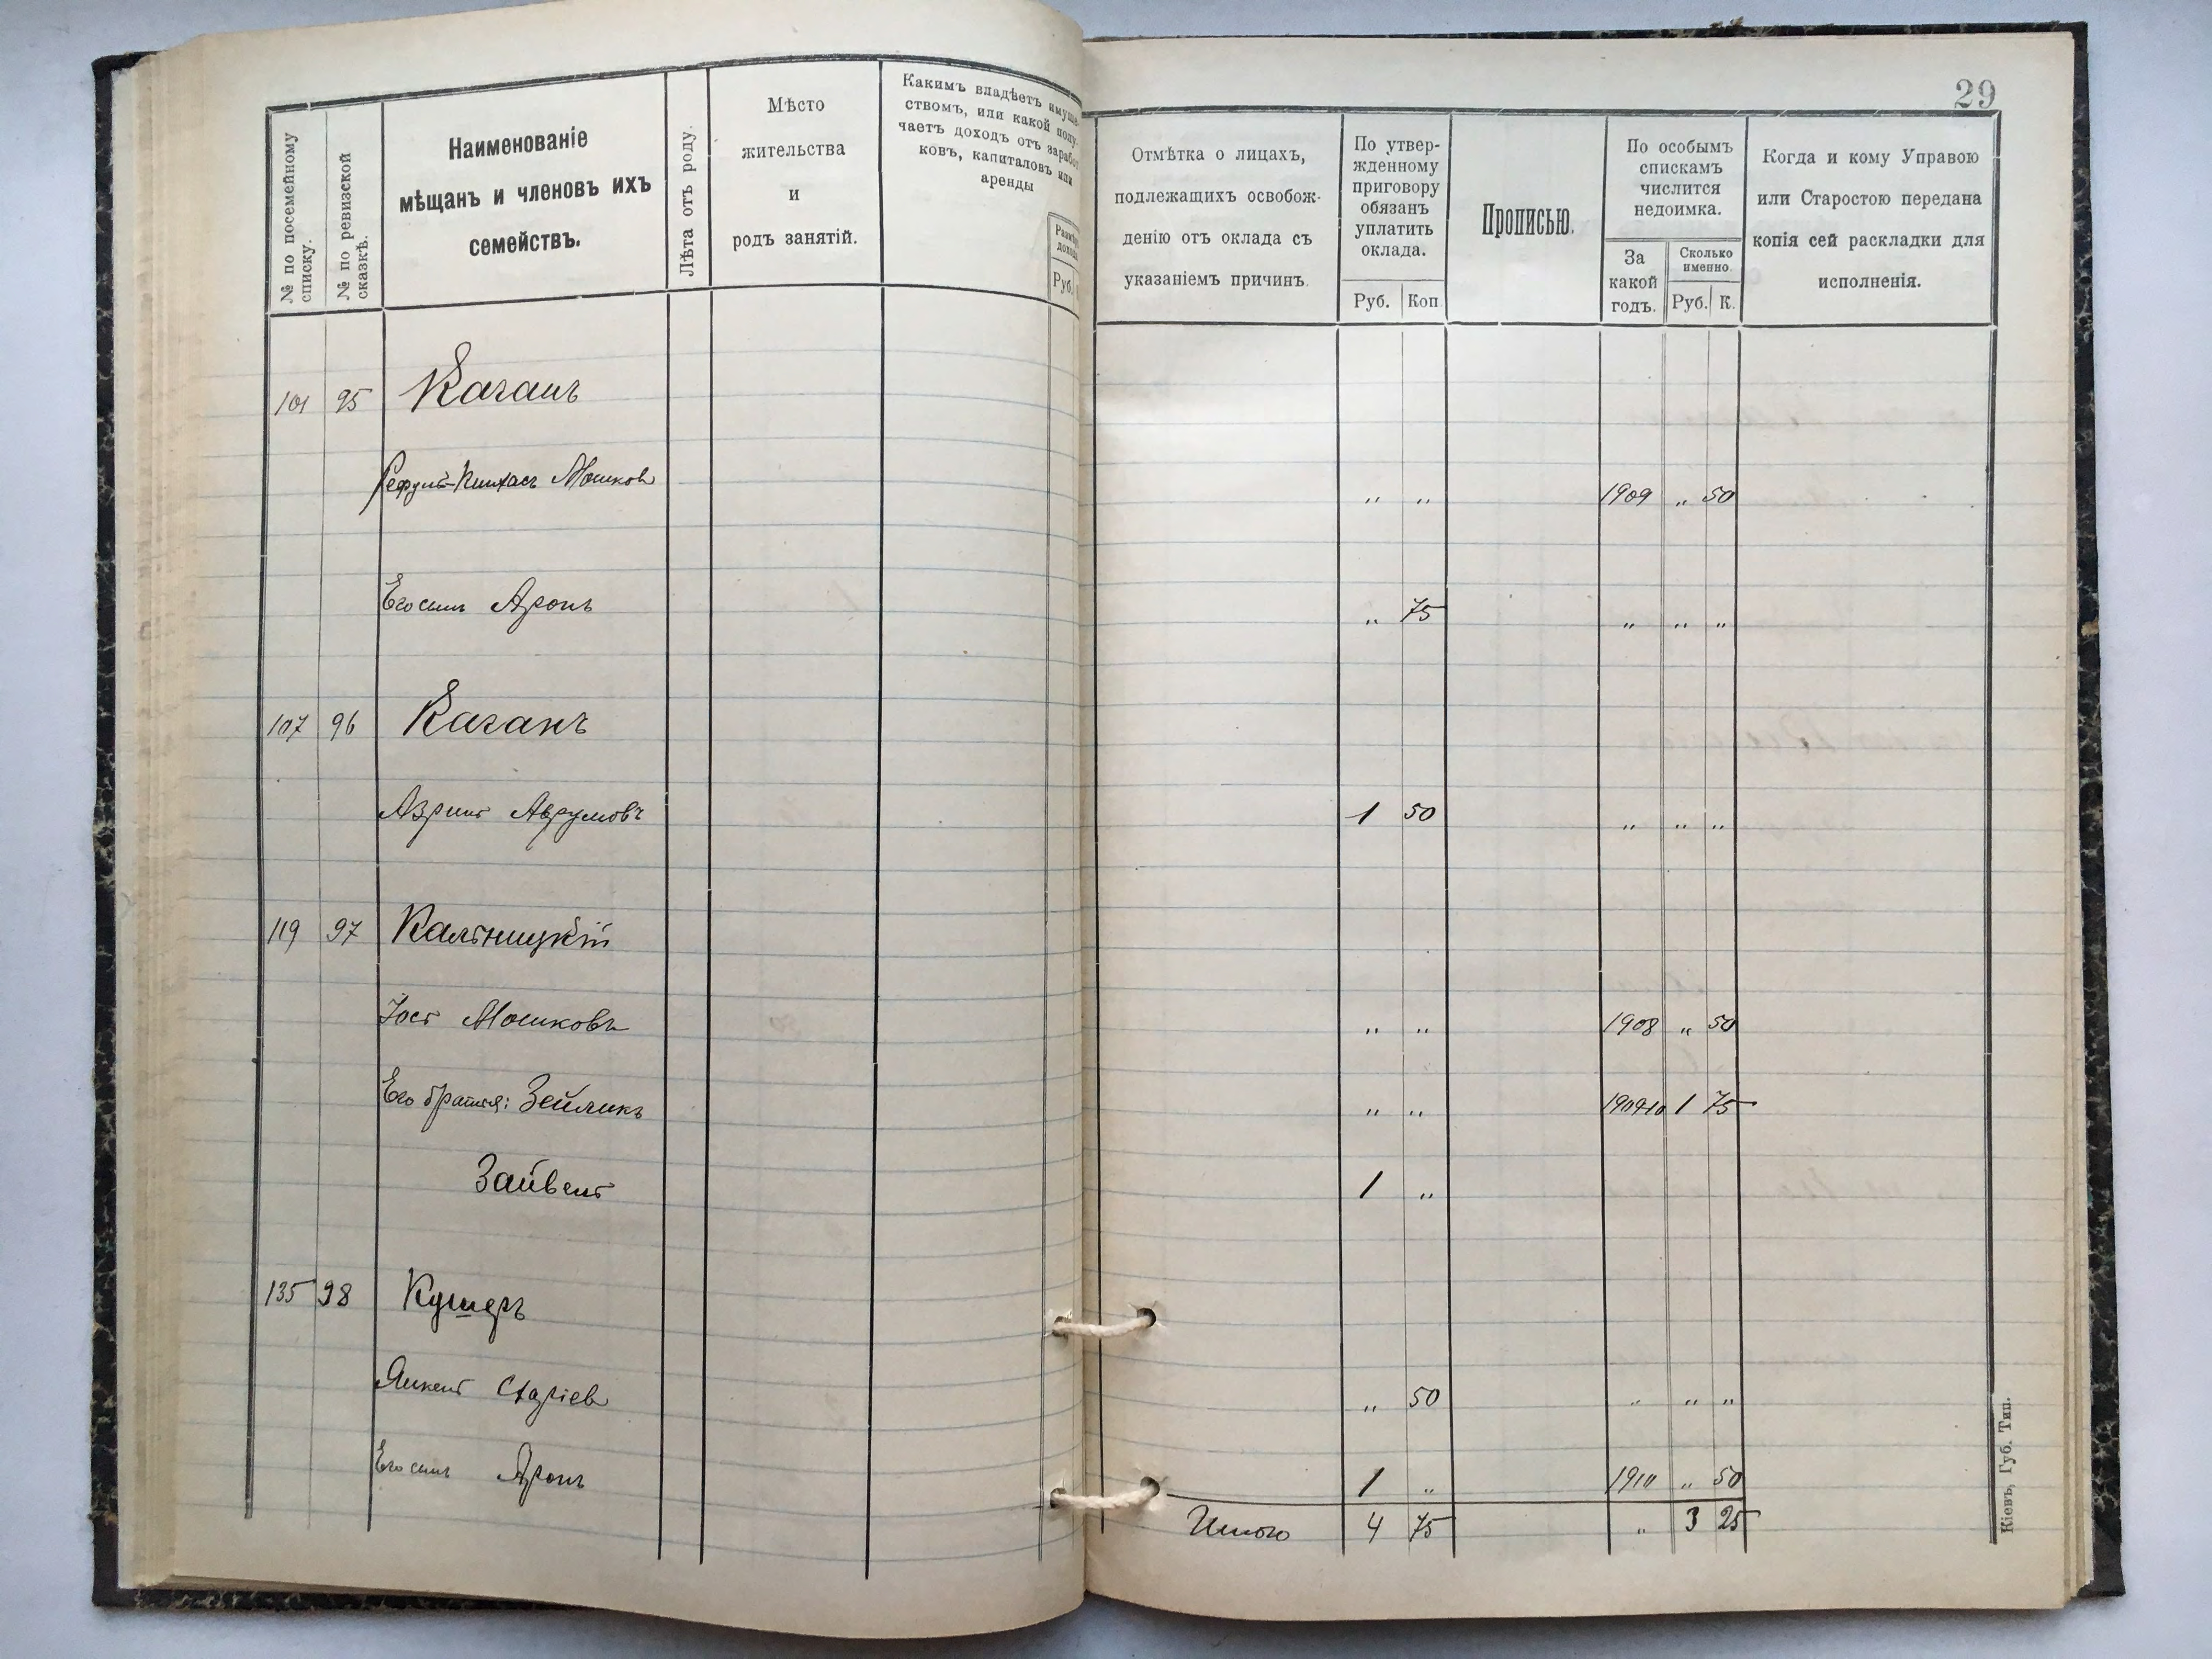 29
№ по посемейному
списку.
№ по ревизской
сказкѣ.
Наименованіе
мѣщанъ и членовъ ихъ
семействъ.
Лѣта отъ роду.
Мѣсто
жительства
и
родъ занятій.
Какимъ владѣетъ имуще
ствомъ, или какой полу
чаетъ доходъ отъ зарабо
ковъ, капиталовъ или
аренды
Руб.
Отмѣтка о лицахъ,
подлежащихъ освобож-
денію отъ оклада съ
указаніемъ причинъ.
По утвер-
жденному
приговору
обязанъ
уплатить
оклада.
Руб. Коп
Прописью.
По особымъ
спискамъ
числится
недоимка.
За
какой
годъ.
Сколько
именно.
Руб. К.
Когда и кому Управою
или Старостою передана
копія сей раскладки для
исполненія.
101 95 Каганъ
Пинхасъ Мошков „ „ 1909 „ 50
Его сынъ Аронъ „ 75 „ „ „
107 96 Каганъ
Азриль Аврумовъ 1 50 „ „ „
119 97 Кальницкій
Іось Мошковъ „ „ 1908 „ 50
Его братья: Зейликъ „ „ 1909-10 1 75
Зайвель 1 „
135 98 Кушеръ
Янкель „ 50 „ „ „
Его сынъ Аронъ 1 „ 1910 „ 50
Итого 4 75 „ 3 25
Кіевъ, Губ. Тип.